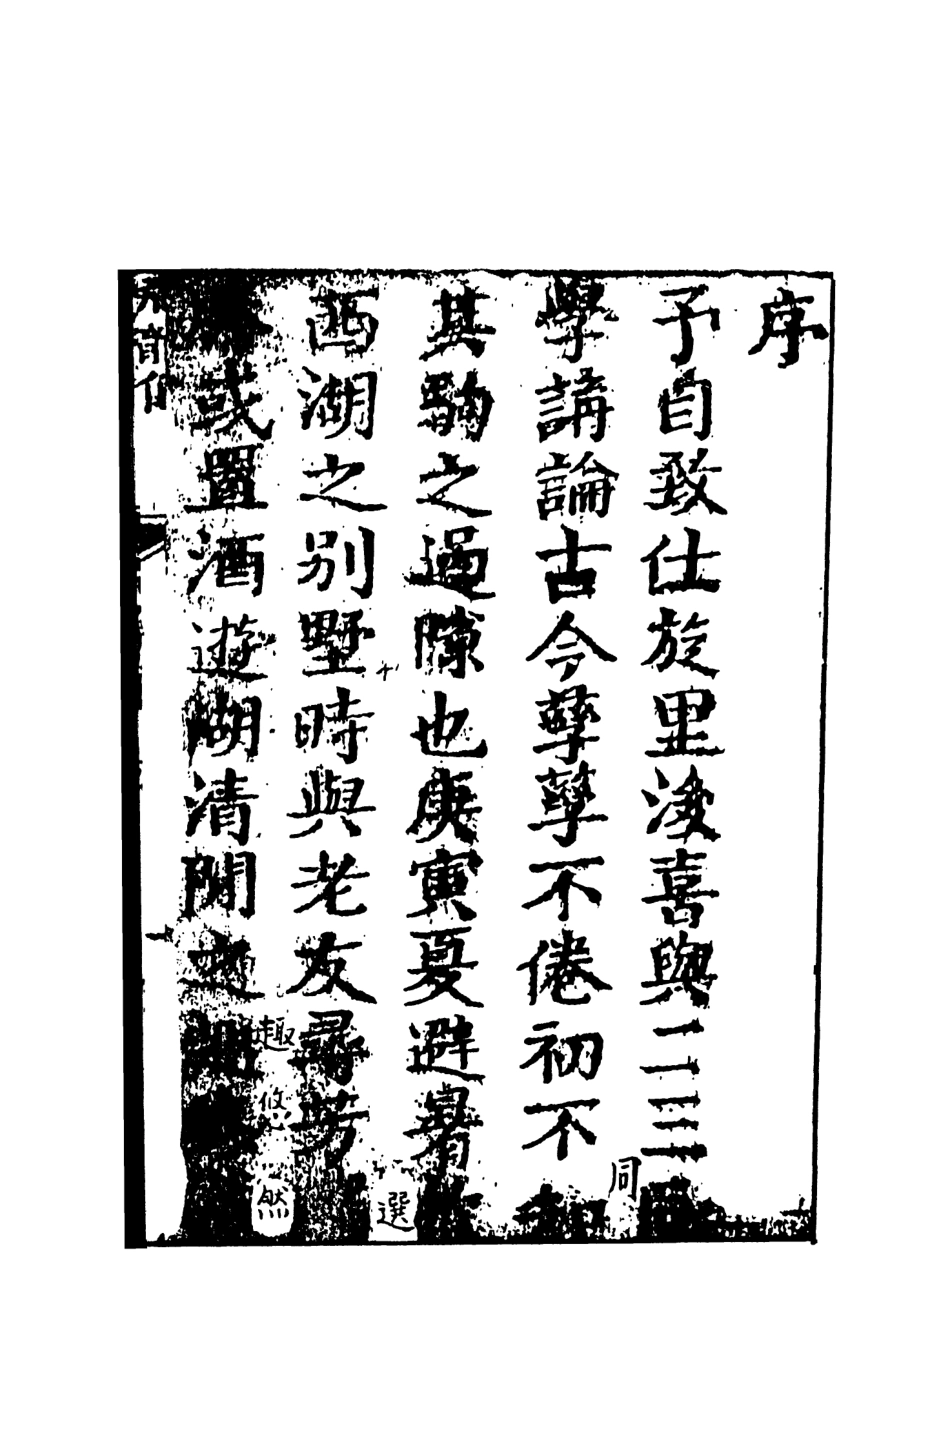 序
予自致仕旋里後喜與二三同
學講論古今孳孳不倦初不知
其駒之過隙也庚寅夏避暑於
西湖之別墅時與老友尋芳選
或置酒遊湖清閒之趣悠然